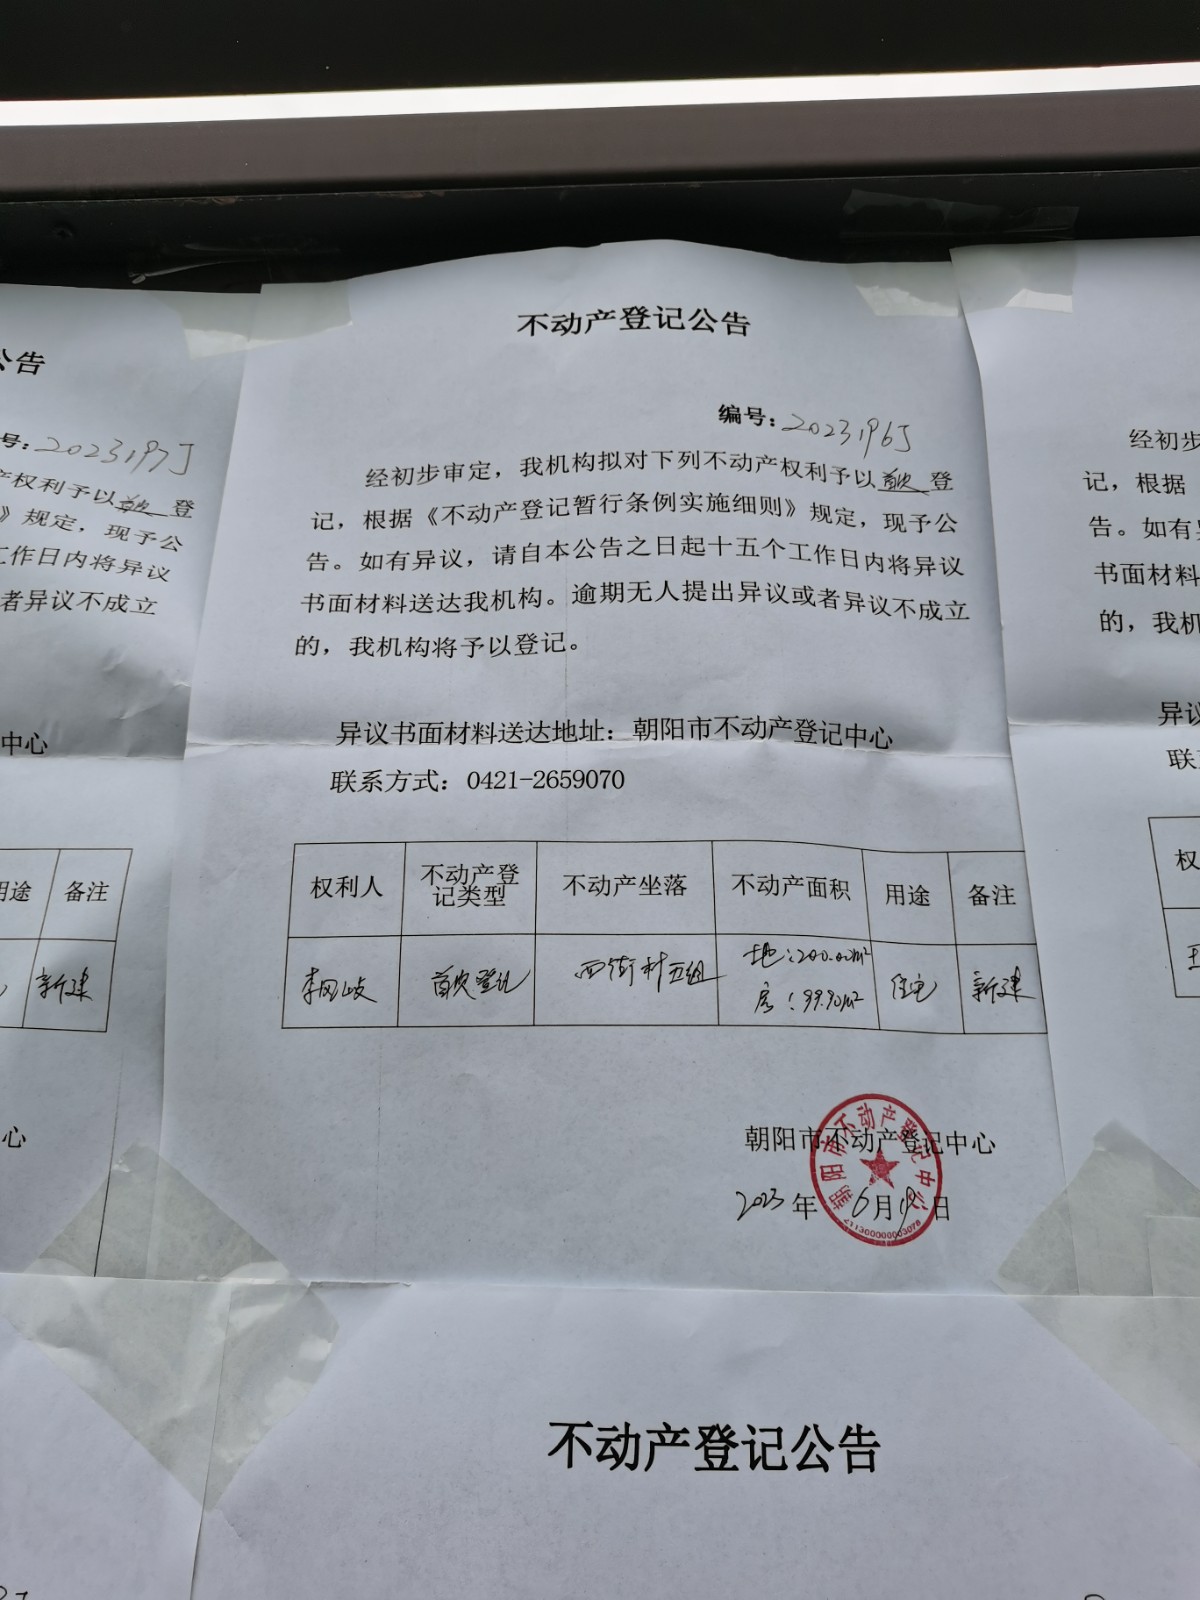 不动产登记公告
编号：2023196J
经初步审定，我机构拟对下列不动产权利予以首次登
记，根据《不动产登记暂行条例实施细则》规定，现予公
告。如有异议，请自本公告之日起十五个工作日内将异议
书面材料送达我机构。逾期无人提出异议或者异议不成立
的，我机构将予以登记。
异议书面材料送达地址：朝阳市不动产登记中心
联系方式：0421-2659070
权利人 不动产登记类型 不动产坐落 不动产面积 用途 备注
首次登记 西街村五组 地：200.00m² 房：99.90m² 住宅 新建
朝阳市不动产登记中心
2023年6月19日
朝阳市不动产登记中心
公告
号：2023197J
产权利予以首次登
》规定，现予公
工作日内将异议
者异议不成立
中心
用途 备注
新建
心
经初步
记，根据
告。如有异
书面材料
的，我机
异议
联
权
不动产登记公告